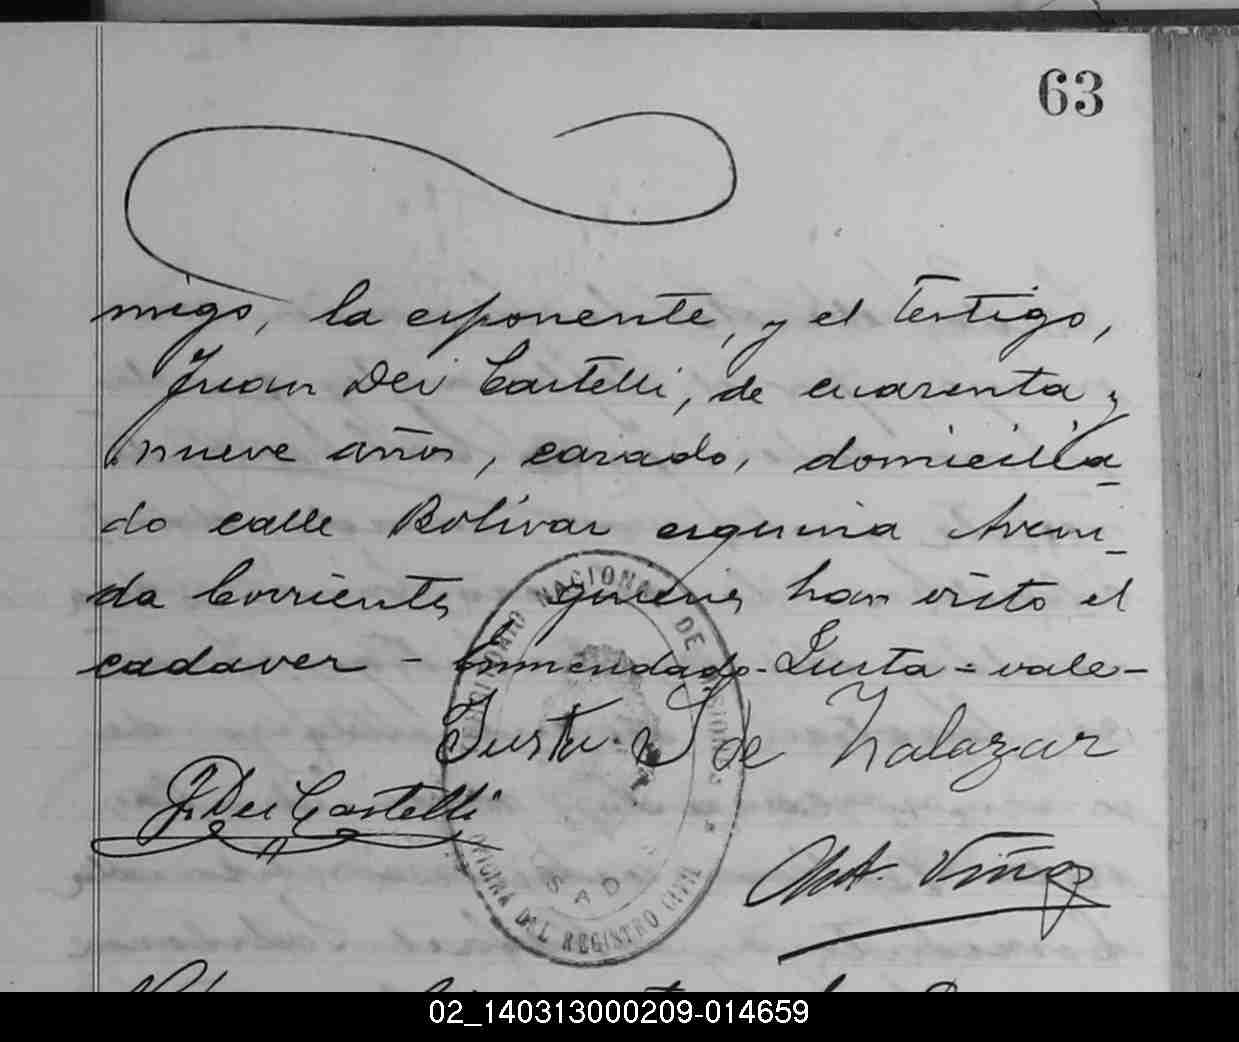 63
migo, la exponente, y el testigo,
Juan Dei Castelli, de cuarenta y
nueve años, casado, domicilia-
do calle Bolívar esquina Aveni-
da Corrientes quienes han visto el
cadaver - Enmendado - Justa = vale -
Justa S de Zalazar
J. Dei Castelli
TERRITORIO NACIONAL DE MISIONES
OFICINA DEL REGISTRO CIVIL
02_140313000209-014659